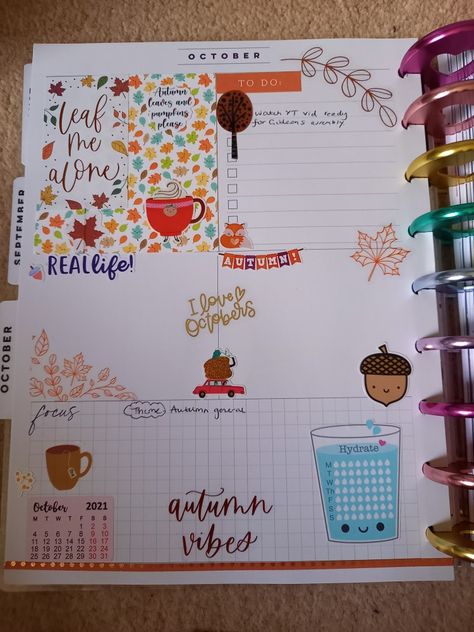 OCTOBER
leaf
me
alone
Autumn
leaves and
pumpkins
please
TO DO:
Watch YT vid ready
for Gideons assembly
SEPTEMBER
REAL life!
AUTUMN!
I love
Octobers
OCTOBER
focus
Theme: Autumn general
Hydrate
M
T
W
Th
F
S
S
October 2021
M T W T F S S
1 2 3
4 5 6 7 8 9 10
11 12 13 14 15 16 17
18 19 20 21 22 23 24
25 26 27 28 29 30 31
autumn
vibes